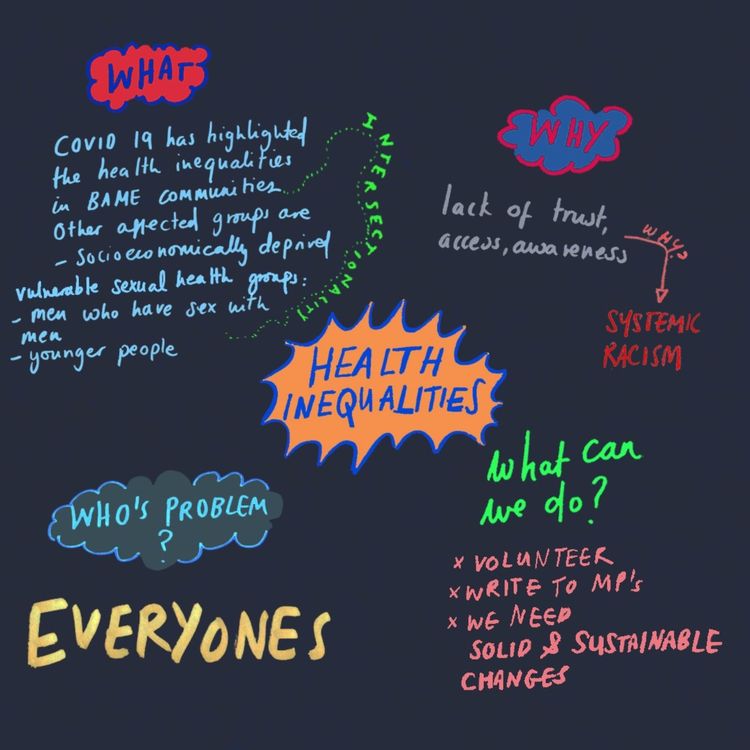 WHAT
COVID 19 has highlighted
the health inequalities
in BAME COMMUNITIES
Other affected groups are
- Socioeconomically deprived
vulnerable sexual health groups:
- men who have sex with
men
- younger people
INTERSECTIONALITY
WHY
lack of trust,
access, awareness
WHY?
SYSTEMIC
RACISM
HEALTH
INEQUALITIES
WHO'S PROBLEM
?
EVERYONES
What can
we do?
x VOLUNTEER
x WRITE TO MP's
x WE NEED
SOLID & SUSTAINABLE
CHANGES